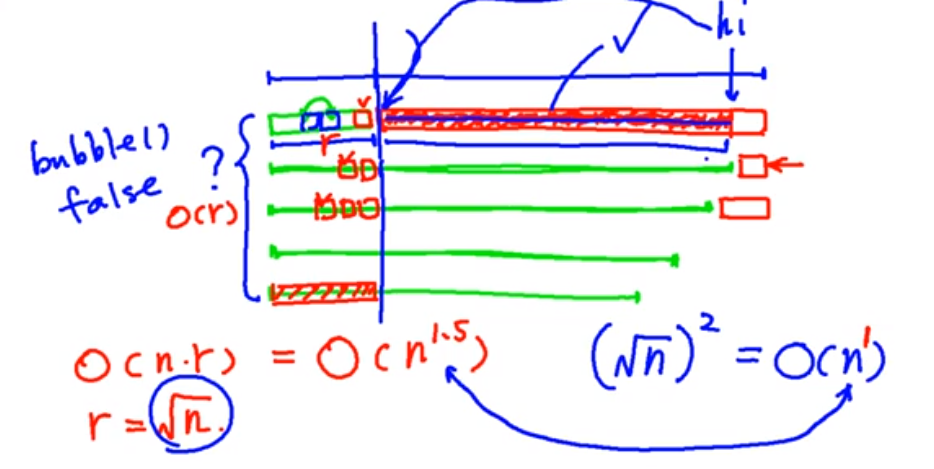 hi
bubble()
false
?
r
O(r)
O(n·r) = O(n^1.5)
r = √n.
(√n)^2 = O(n^1)